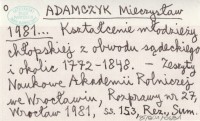 o ADAMCZYK Mieczysław
1981... Kształcenie młodzieży
chłopskiej z obwodu sądeckiego
i okolic 1772-1848. — Zeszyty
Naukowe Akademii Rolniczej
we Wrocławiu, Rozprawy nr 27,
Wrocław 1981, ss. 153, Rez., Sum.